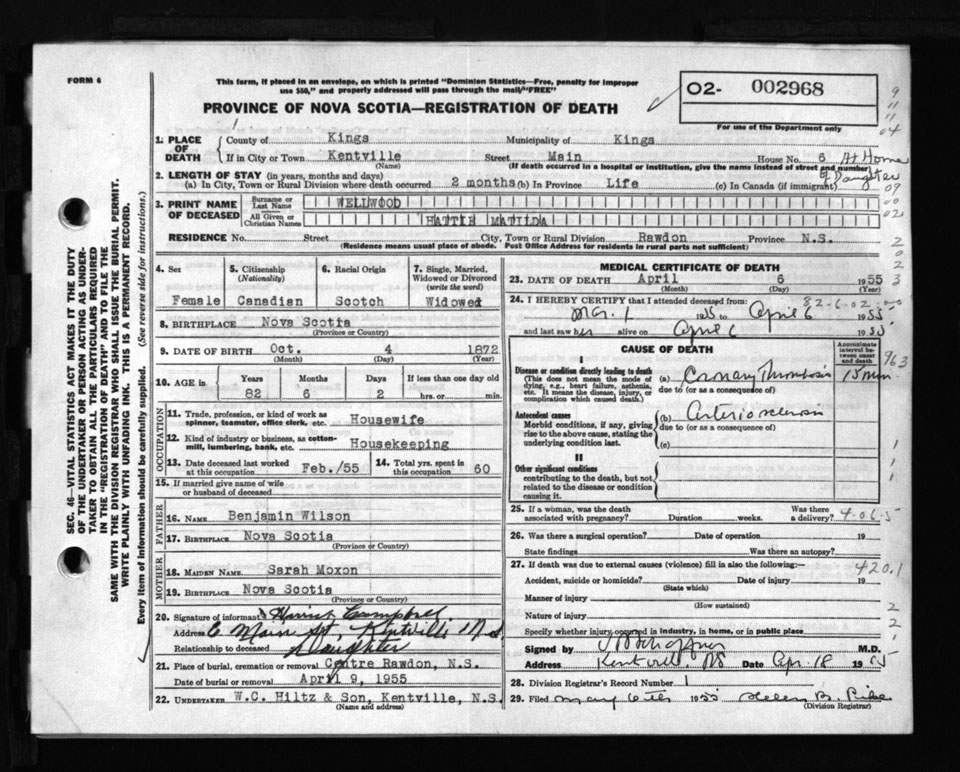 FORM 6
This form, if placed in an envelope, on which is printed "Dominion Statistics—Free, penalty for improper
use $50," and properly addressed will pass through the mail "FREE"
PROVINCE OF NOVA SCOTIA—REGISTRATION OF DEATH
O2- 002968
For use of the Department only
9
11
11
04
SEC. 46—VITAL STATISTICS ACT MAKES IT THE DUTY
OF THE UNDERTAKER OR PERSON ACTING AS UNDER-
TAKER TO OBTAIN ALL THE PARTICULARS REQUIRED
IN THE "REGISTRATION OF DEATH" AND TO FILE THE
SAME WITH THE DIVISION REGISTRAR WHO SHALL ISSUE THE BURIAL PERMIT.
WRITE PLAINLY WITH UNFADING INK. THIS IS A PERMANENT RECORD.
Every item of information should be carefully supplied. (See reverse side for instructions.)
1. PLACE OF DEATH
County of Kings Municipality of Kings
If in City or Town Kentville Street Main House No. 6 At Home
(Name) (If death occurred in a hospital or institution, give the name instead of street and number)
of Daughter
2. LENGTH OF STAY (in years, months and days)
(a) In City, Town or Rural Division where death occurred 2 months (b) In Province Life (c) In Canada (if immigrant)
09
00
02
3. PRINT NAME OF DECEASED
Surname or Last Name WELLWOOD
All Given or Christian Names HATTIE MATILDA
RESIDENCE No. Street City, Town or Rural Division Rawdon Province N.S.
(Residence means usual place of abode. Post Office Address for residents in rural parts not sufficient)
2
0
2
2
3
4. Sex Female
5. Citizenship (Nationality) Canadian
6. Racial Origin Scotch
7. Single, Married, Widowed or Divorced (write the word) Widowed
8. BIRTHPLACE Nova Scotia
(Province or Country)
9. DATE OF BIRTH Oct. 4 1872
(Month) (Day) (Year)
10. AGE in Years Months Days If less than one day old
82 6 2 hrs. or min.
OCCUPATION
11. Trade, profession, or kind of work as
spinner, teamster, office clerk, etc. Housewife
12. Kind of industry or business, as cotton-
mill, lumbering, bank, etc. Housekeeping
13. Date deceased last worked
at this occupation Feb./55
14. Total yrs. spent in
this occupation 60
15. If married give name of wife
or husband of deceased
FATHER
16. NAME Benjamin Wilson
17. BIRTHPLACE Nova Scotia
(Province or Country)
MOTHER
18. MAIDEN NAME Sarah Moxon
19. BIRTHPLACE Nova Scotia
(Province or Country)
20. Signature of informant Campbell
Address 6 Main St, Kentville N.S
Relationship to deceased Daughter
21. Place of burial, cremation or removal Centre Rawdon, N.S.
Date of burial or removal April 9, 1955
22. UNDERTAKER W.C. Hiltz & Son, Kentville, N.S.
(Name and address)
MEDICAL CERTIFICATE OF DEATH
23. DATE OF DEATH April 6 1955
(Month) (Day) (Year)
24. I HEREBY CERTIFY that I attended deceased from: 82-6-02-00
Mar. 1 1955 to April 6 1955
and last saw her alive on April 6 1955
CAUSE OF DEATH
Approximate
interval between onset
and death
963
I
Disease or condition directly leading to death
(This does not mean the mode of
dying, e.g., heart failure, asthenia,
etc. It means the disease, injury, or
complication which caused death.)
(a) Coronary Thrombosis 15 min
due to (or as a consequence of)
Antecedent causes
Morbid conditions, if any, giving
rise to the above cause, stating the
underlying condition last.
(b) Arteriosclerosis
due to (or as a consequence of)
(c)
1
1
1
II
Other significant conditions
contributing to the death, but not
related to the disease or condition
causing it.
25. If a woman, was the death
associated with pregnancy? Duration weeks. Was there
a delivery? 4-06-5
26. Was there a surgical operation? Date of operation 19
State findings Was there an autopsy?
27. If death was due to external causes (violence) fill in also the following:— 420.1
Accident, suicide or homicide? Date of injury 19
(State which)
Manner of injury
(How sustained)
Nature of injury
2
2
1
Specify whether injury occurred in industry, in home, or in public place
Signed by M.D.
Address Kentville NS Date Apr. 18 1955
28. Division Registrar's Record Number 1
29. Filed May 1955 Helen B.
(Division Registrar)